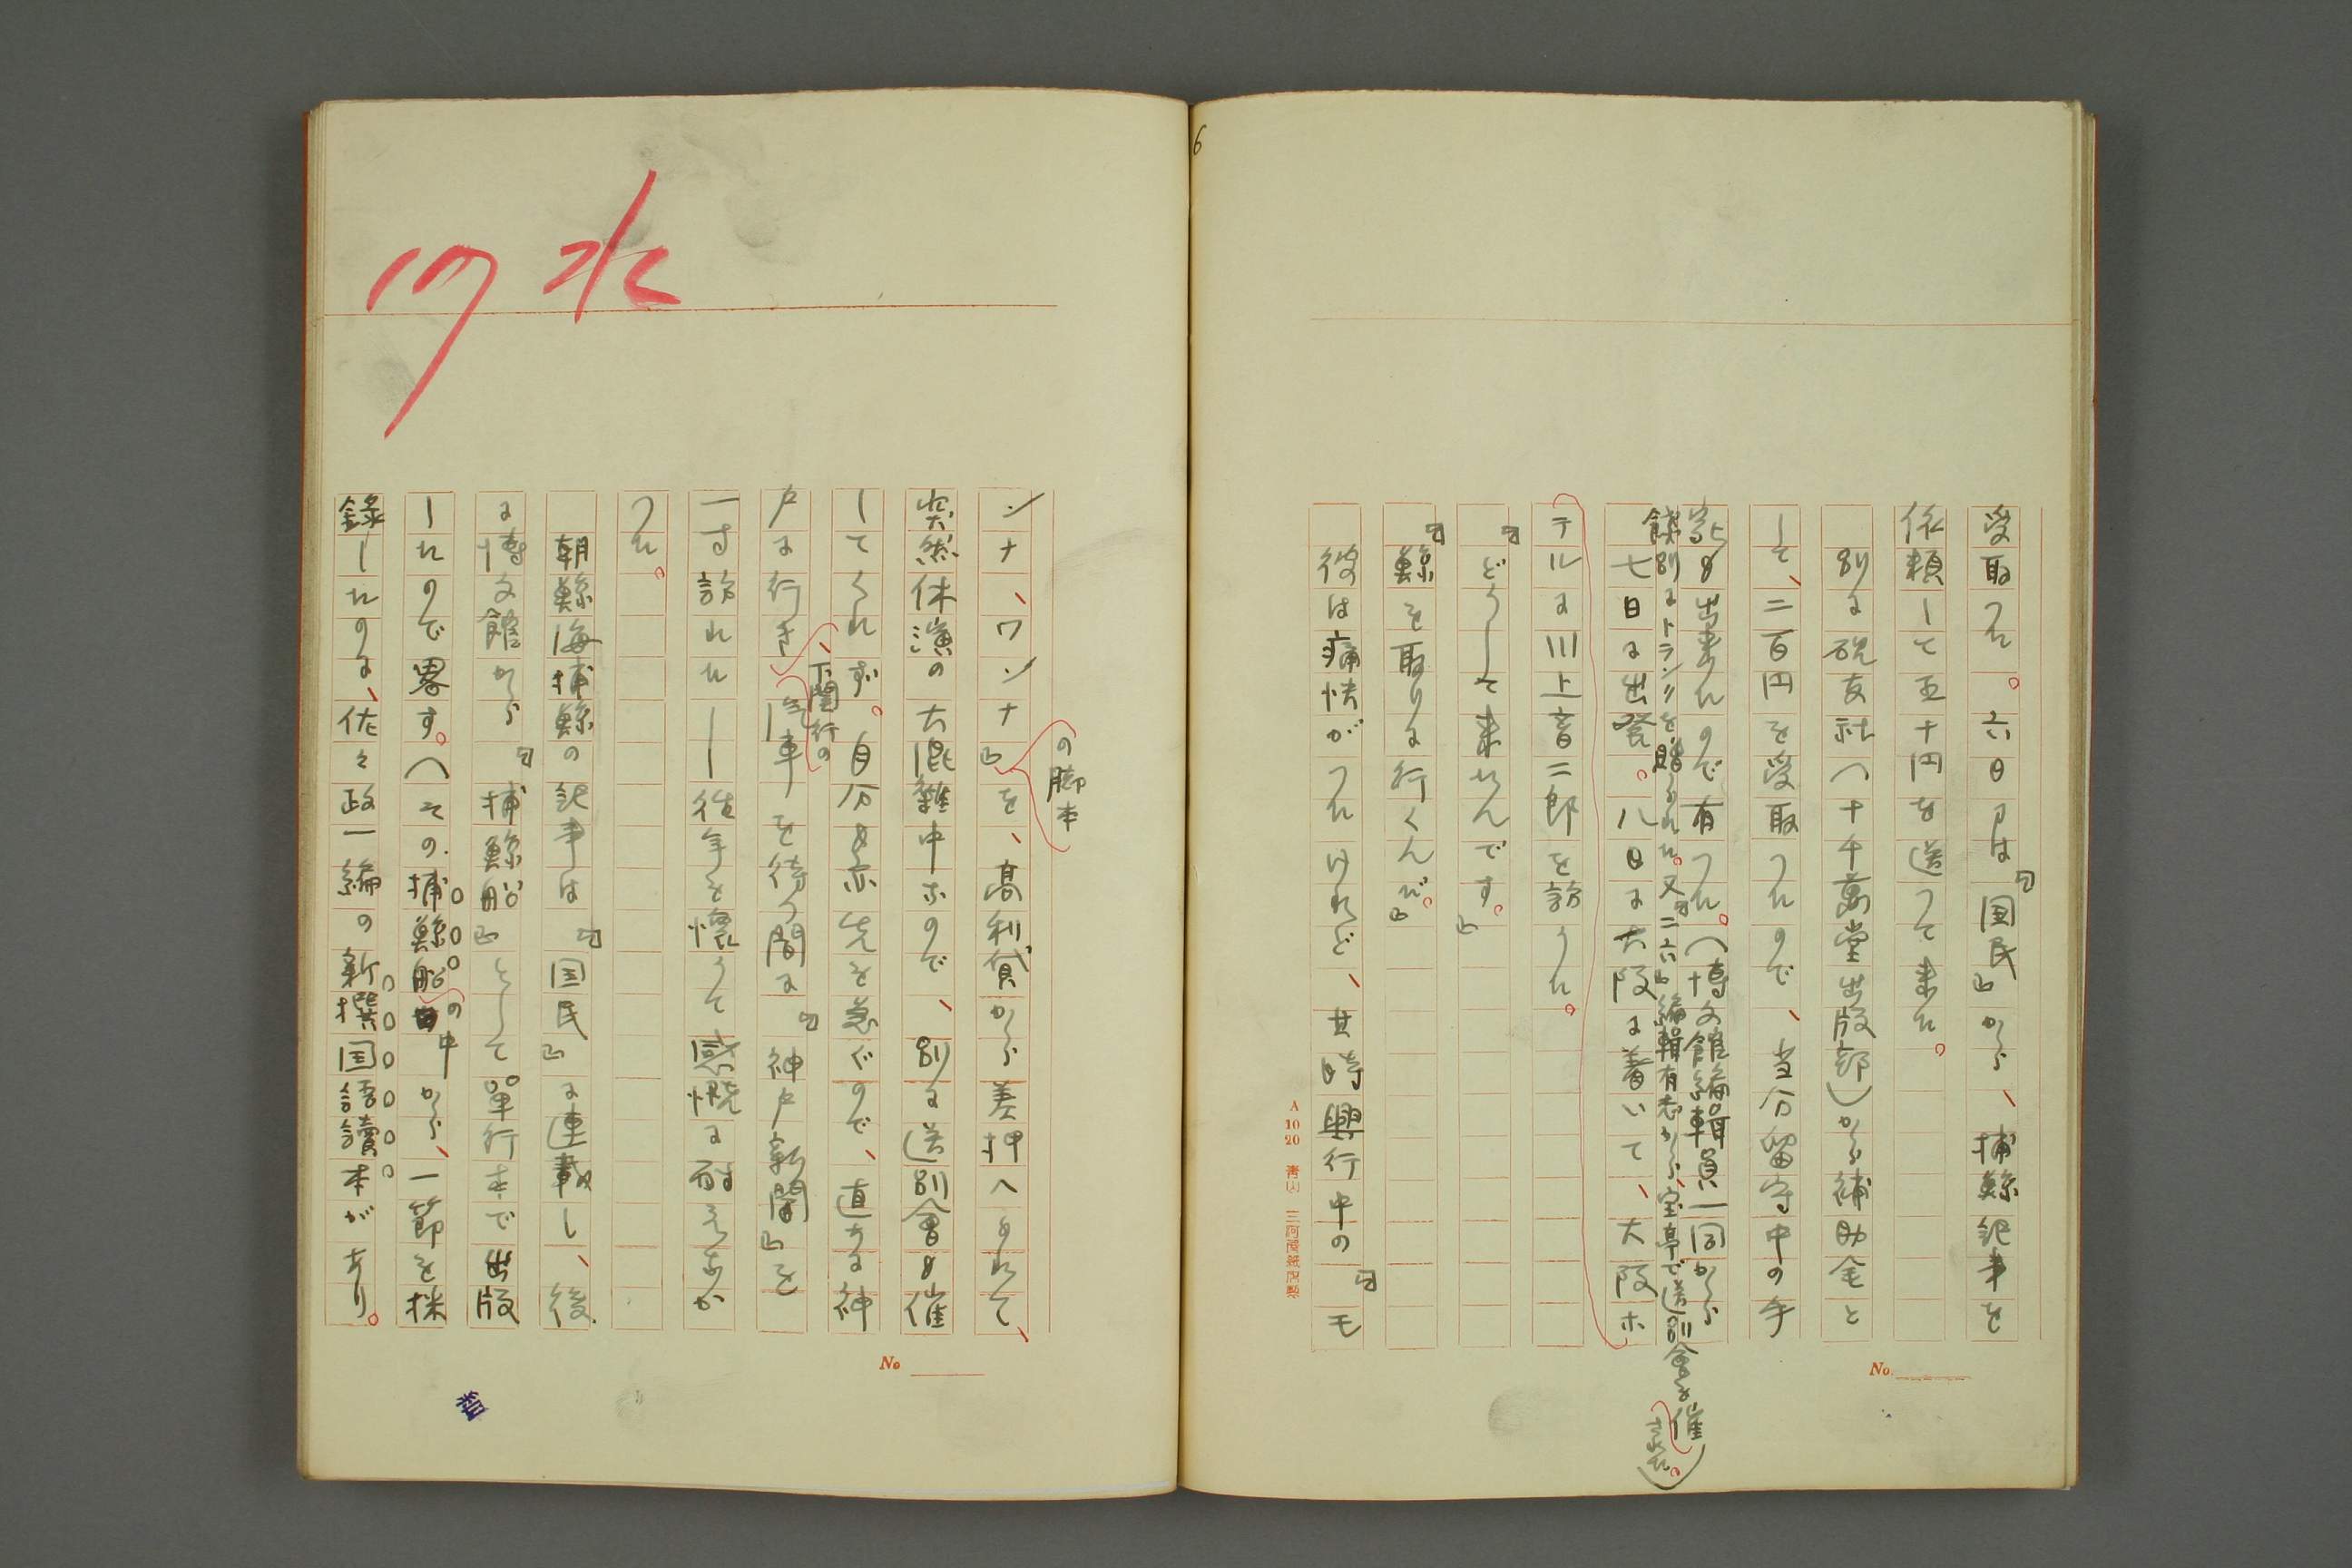 6
受取つた。六日には『国民』から、捕鯨記事を
依頼して五十円を送つて来た。
別に硯友社（十千萬堂出版部）から補助金と
して、二百円を受取つたので、当分留守中の手
記も出来たので有つた。（博文館編輯員一同から
餞別にトランクを贈られた。又『二六』編輯有志から、宝亭で送別會を催
された。）
七日に出発。八日に大阪に着いて、大阪ホ
テルに川上音二郎を訪うた。
『どうして来たんです。』
『鯨を取りに行くんだ。』
彼は痛快がつたけれど、其時興行中の『モ
A 10 20
No.
の脚本
ンナ、ワンナ』を、高利貸から差押へられて、
突然休演の大混雑中なので、別に送別會も催
してくれず。自分も亦先を急ぐので、直ちに神
戸に行き、下関行の汽車を待つ間に『神戸新聞』を
一寸訪れた——往年を懐うて感慨に耐えなか
つた。
朝鮮海捕鯨の記事は『国民』に連載し、後
に博文館から『捕鯨船』として單行本で出版
したので畧す。（その捕鯨船の中から、一節を採
録したのに、佐々政一編の新撰国語讀本があり。
No
17 水